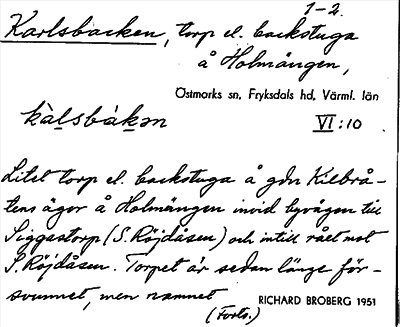 1-2.
Karlsbacken, torp el. backstuga
å Holmången,
Östmarks sn, Fryksdals hd, Värml. län
kàlsbàkən
VI:10
Litet torp el. backstuga å gdn Kilbrå-
tens ägor å Holmängen invid byvägen till
Siggastorp (S. Röjdåsen) och intill rået mot
S. Röjdåsen. Torpet är sedan länge för-
svunnet, men namnet
RICHARD BROBERG 1951
(Forts.)